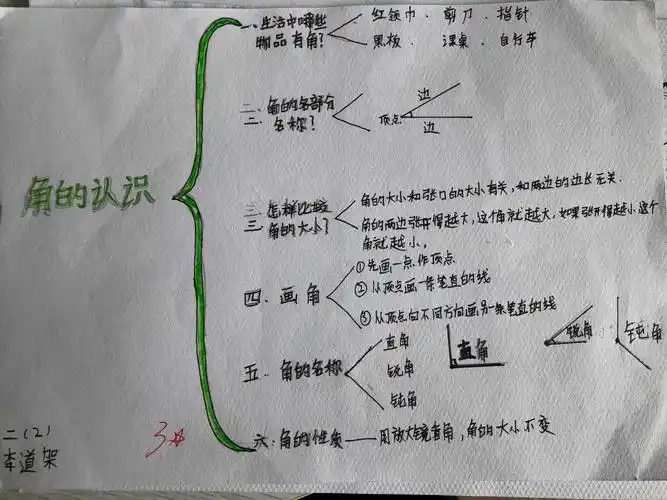 角的认识
一、生活中哪些
物品有角?
红领巾、剪刀、指针
黑板、课桌、自行车
二、角的各部分
二、名称?
顶点
边
边
三、怎样比较
三、角的大小?
角的大小和张口的大小有关,和两边的边长无关.
角的两边张开得越大,这个角就越大,如果张开得越小,这个
角就越小。
四、画角
①先画一点作顶点
②从顶点画一条笔直的线
③从顶点向不同方向画另一条笔直的线
五、角的名称
直角
锐角
钝角
直角
锐角
钝角
六、角的性质——用放大镜看角,角的大小不变
二(2)
3